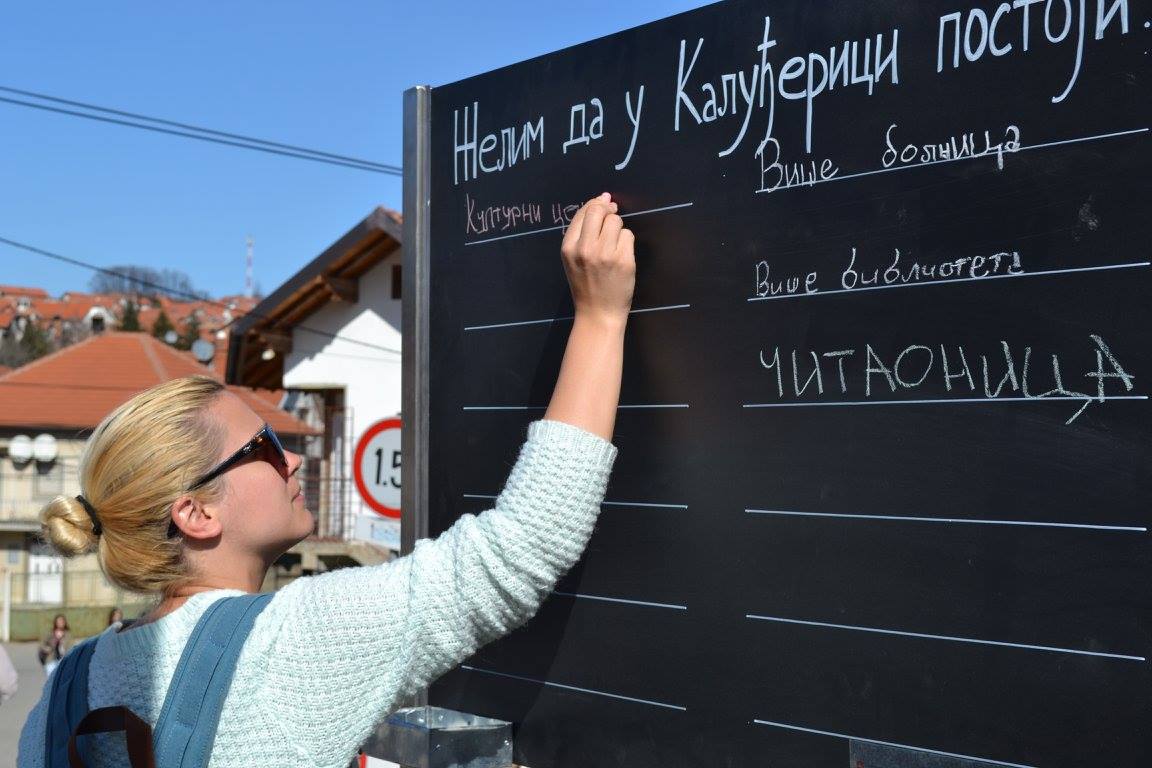 Желим да у Калуђерици постоји:
Културни
Више болница
Више библиотета
ЧИТАОНИЦА
1.5